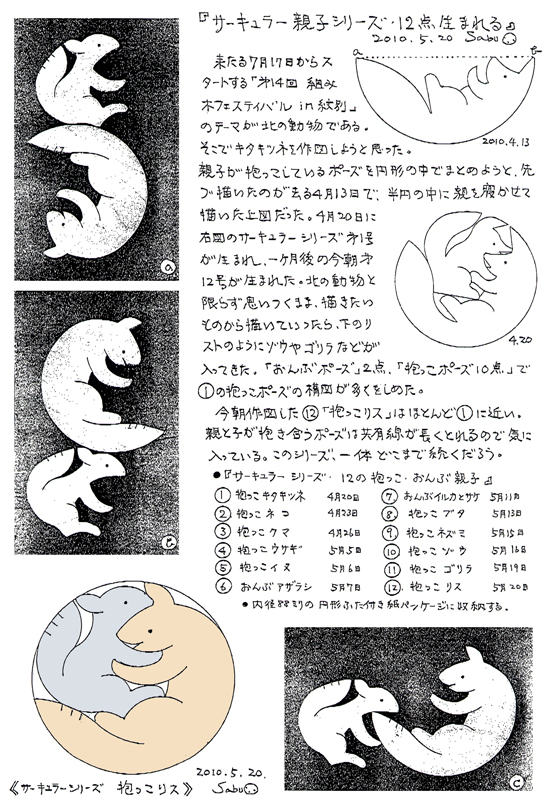 『サーキュラー親子シリーズ・12点生まれる』
2010.5.20 Sabu
a
b
来たる7月17日からス
タートする「第14回 組み
木フェスティバル in 紋別」
のテーマが北の動物である。
2010.4.13
そこでキタキツネを作図しようと思った。
親子が抱っこしているポーズを円形の中でまとめようと、先
づ描いたのが去る4月13日で、半円の中に親を寝かせて
描いた上図だった。4月20日に
右図のサーキュラーシリーズ第1号
が生まれ、一ヶ月後の今朝第
12号が生まれた。北の動物と
限らず思いつくまま、描きたい
ものから描いていったら、下のリ
ストのようにゾウやゴリラなどが
4.20
入ってきた。「おんぶポーズ」2点、「抱っこポーズ10点」で
①の抱っこポーズの構図が多くをしめた。
今朝作図した⑫「抱っこリス」はほとんど①に近い。
親と子が抱き合うポーズは共有線が長くとれるので気に
入っている。このシリーズ、一体どこまで続くだろう。
●『サーキュラーシリーズ・12の抱っこ・おんぶ親子』
① 抱っこキタキツネ 4月20日
② 抱っこ ネコ 4月23日
③ 抱っこ クマ 4月26日
④ 抱っこ ウサギ 5月5日
⑤ 抱っこ イヌ 5月6日
⑥ おんぶ アザラシ 5月7日
⑦ おんぶイルカとサケ 5月11日
⑧ 抱っこ ブタ 5月13日
⑨ 抱っこ ネズミ 5月15日
⑩ 抱っこ ゾウ 5月16日
⑪ 抱っこ ゴリラ 5月19日
⑫ 抱っこ リス 5月20日
●内径88ミリの円形ふた付き紙パッケージに収納する。
a
b
c
2010.5.20.
《サーキュラーシリーズ 抱っこリス》 Sabu